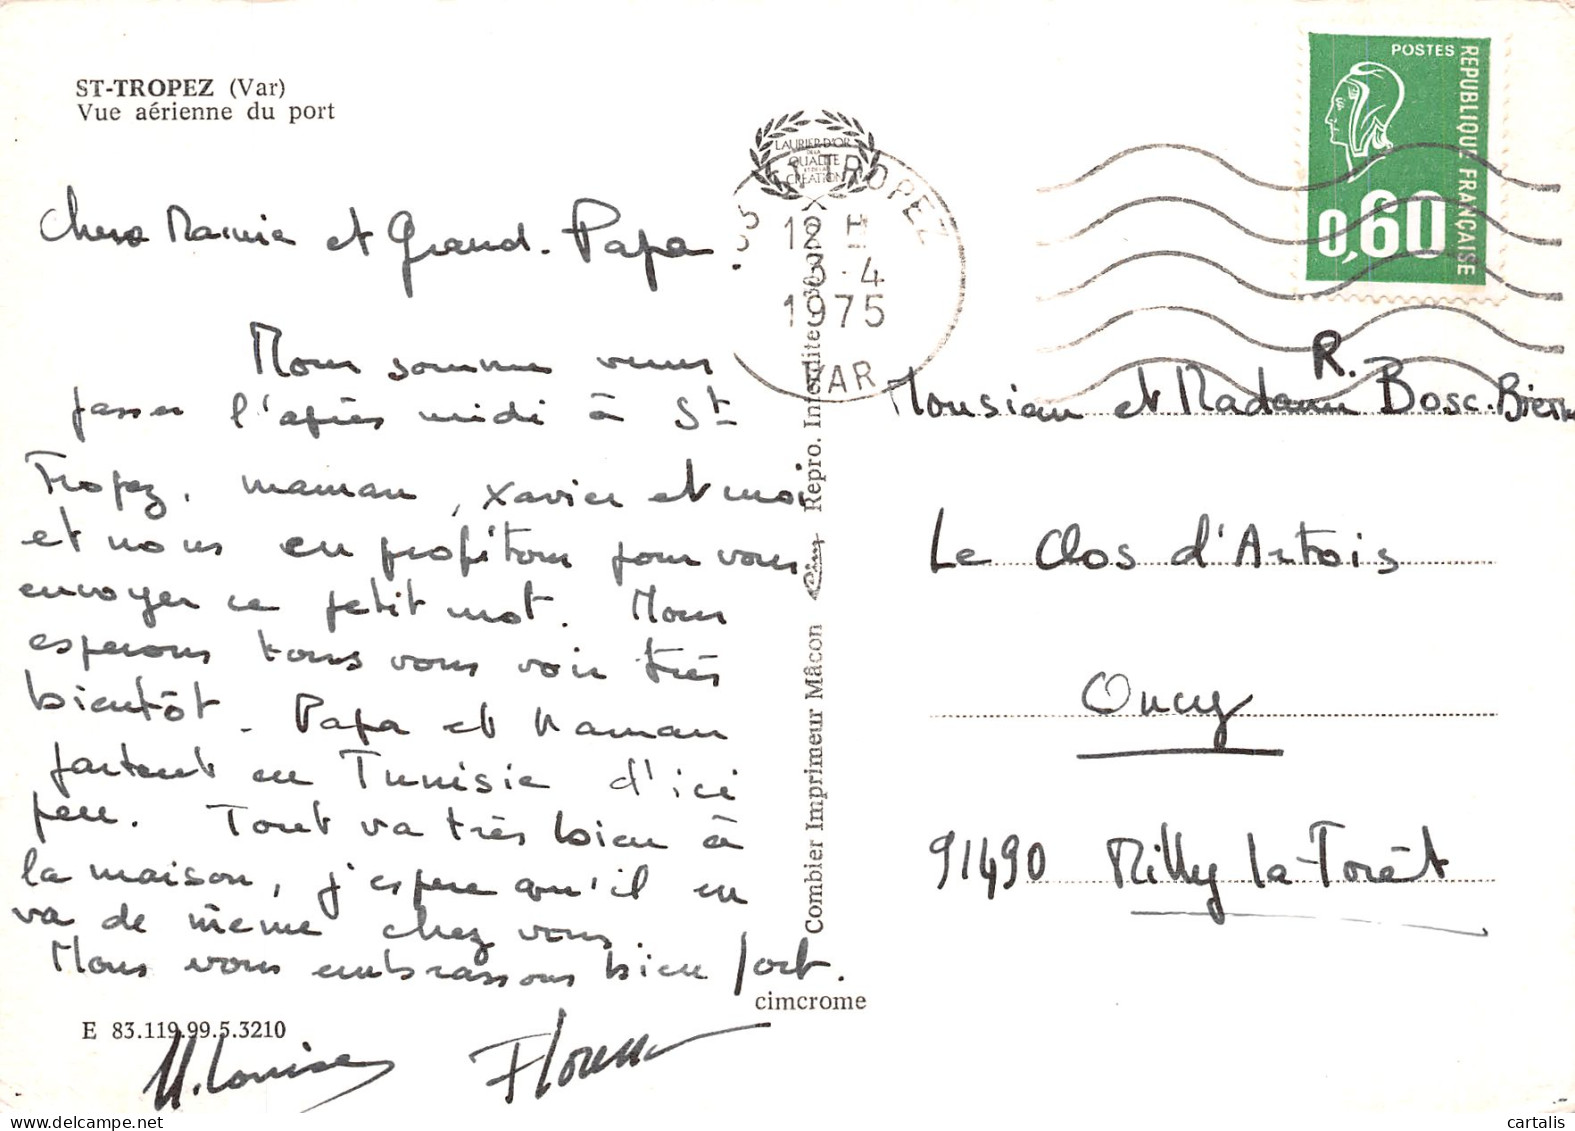 ST-TROPEZ (Var)
Vue aérienne du port
Chers Mamie et Grand-Papa.
Nous sommes venus
passer l'après midi à St
Tropez, maman, Xavier et moi
et nous en profitons pour vous
envoyer ce petit mot. Nous
espérons tous vous voir très
bientôt. Papa et Maman
partent en Tunisie d'ici
peu. Tout va très bien à
la maison, j'espère qu'il en
va de même chez vous.
Nous vous embrassons bien fort.
E 83.119.99.5.3210
M. Louise Florence
cimcrome
Combier Imprimeur Mâcon
Repro. Interdite
LAURIER D'OR
DE LA
QUALITE
ET DE LA
CREATION
ST TROPEZ
12 H
3-4
1975
VAR
POSTES
REPUBLIQUE FRANÇAISE
0,60
R.
Monsieur et Madame Bosc.
Le Clos d'Artois
Oncy
91490 Milly la-Forêt
cartalis